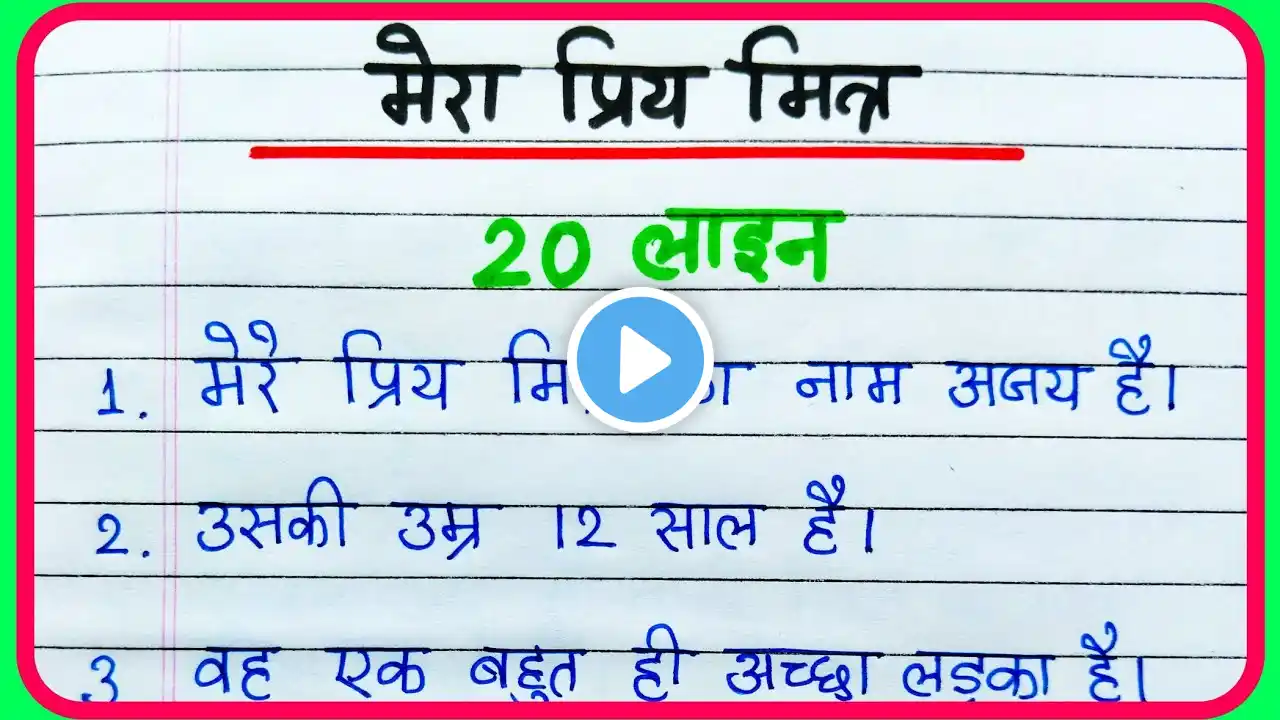 मेरा प्रिय मित्र
20 लाइन
1. मेरे प्रिय नाम अजय है।
2. उसकी उम्र 12 साल है।
3 वह एक बहुत ही अच्छा लड़का है।